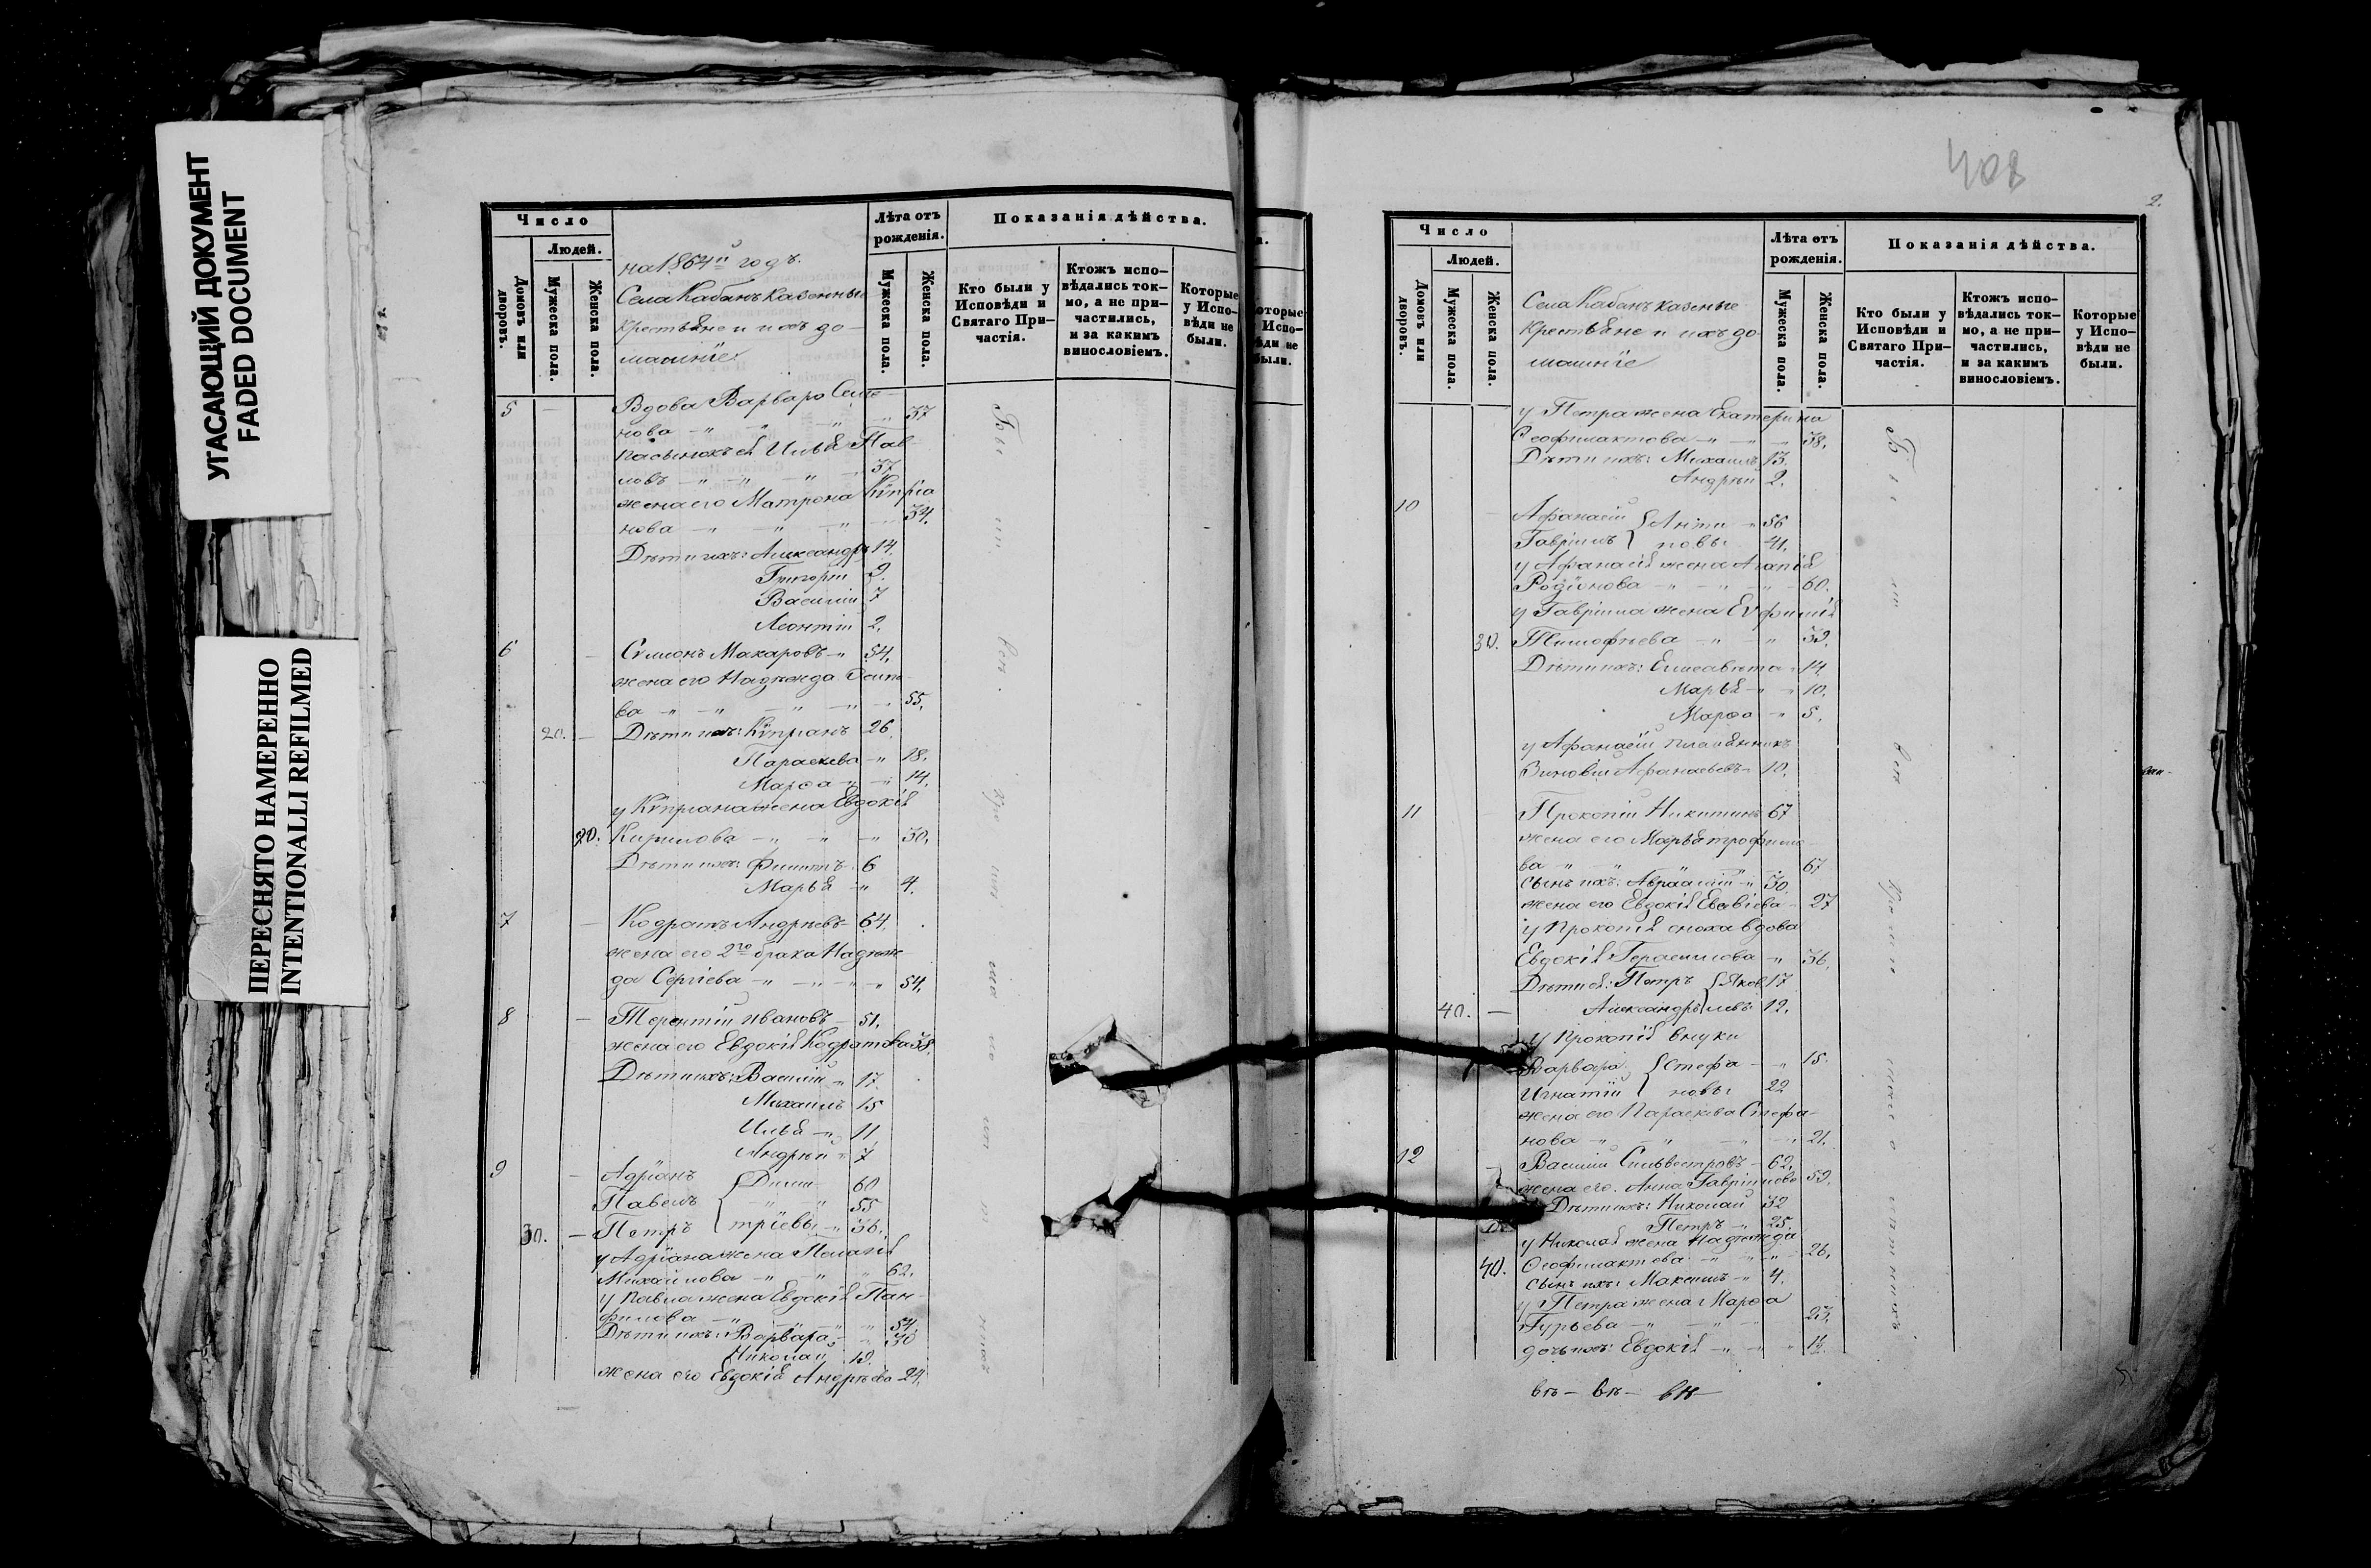 УГАСАЮЩИЙ ДОКУМЕНТ
FADED DOCUMENT
ПЕРЕСНЯТО НАМЕРЕННО
INTENTIONALLI REFILMED
Число
Людей.
Домовъ или дворовъ.
Мужеска пола.
Женска пола.
на 1864й годъ.
Села Кабанъ казенные
крестьяне и ихъ до-
машніе
Лѣта отъ
рожденія.
Мужеска пола.
Женска пола.
Показанія дѣйства.
Кто были у
Исповѣди и
Святаго При-
частія.
Ктожъ испо-
вѣдались ток-
мо, а не при-
частились,
и за какимъ
винословіемъ.
Которые
у Испо-
вѣди не
были.
5 Вдова Варвара Семе-
нова 37
пасынокъ ея Илья Пав-
ловъ 37
жена его Матрона Кипріа
нова 34.
Дѣти ихъ: Александръ 14.
Григорій 9.
Василій 7
Леонтій 2.
6 Симеонъ Макаровъ 54.
жена его Надежда Осипо-
ва 55.
20. Дѣти ихъ: Кипріанъ 26
Параскева 18.
Марѳа 14.
у Кипріана жена Евдокія
20. Кирилова 30.
Дѣти ихъ: Филиптъ 6
Марья 4.
7 Кодратъ Андреевъ 64.
жена его 2го брака Надеж-
да Сергіева 54.
8 Терентій Ивановъ 51.
жена его Евдокія Кодратова 38.
Дѣти ихъ: Василій 17.
Михаилъ 15
Илья 11
Андрей 7
9 Адріанъ Дими 60
Павелъ 55
30. Петръ тріевы 36.
у Адріана жена Пелагія
Михайлова 62.
у Павла жена Евдокія Пан-
филова 54.
Дѣти ихъ: Варвара 30
Николай 19.
жена его Евдокія Андреева 24.
408
2.
Число
Людей.
Домовъ или дворовъ.
Мужеска пола.
Женска пола.
Села Кабанъ казенные
крестьяне и ихъ до
машніе
Лѣта отъ
рожденія.
Мужеска пола.
Женска пола.
Показанія дѣйства.
Кто были у
Исповѣди и
Святаго При-
частія.
Ктожъ испо-
вѣдались ток-
мо, а не при-
частились,
и за какимъ
винословіемъ.
Которые
у Испо-
вѣди не
были.
у Петра жена Екатерина
Ѳеофилактова 38.
Дѣти ихъ: Михаилъ 13.
Андрей 2.
10 Афанасій Анти 56
Гавріилъ повы 41.
у Афанасія жена Агапія
Родіонова 60.
у Гавріила жена Евфимія
30. Тимофѣева 39.
Дѣти ихъ: Елисавета 14.
Марья 10.
Марѳа 5.
у Афанасія племянникъ
Зиновій Афанасьевъ 10.
11 Прокопій Никитинъ 67
жена его Марья Трофимо
ва 67
сынъ ихъ: Аврамій 30
жена его Евдокія 27
у Прокопія сноха вдова
Евдокія Герасимова 36.
Дѣти ея: Петръ Яков 17
40. Александръ левы 12.
у Прокопія внуки
Варвара Стефа 15.
Игнатій новы 22
жена его Параскева Стефа-
нова 21.
12 Василій Сильвестровъ 62.
жена его Анна Гавріилова 59.
Дѣти ихъ: Николай 32
Петръ 25.
у Николая жена Надежда
40. Ѳеофилактова 26.
сынъ ихъ: Максимъ 4.
у Петра жена Марѳа
Гурьева 23.
дочь ихъ: Евдокія